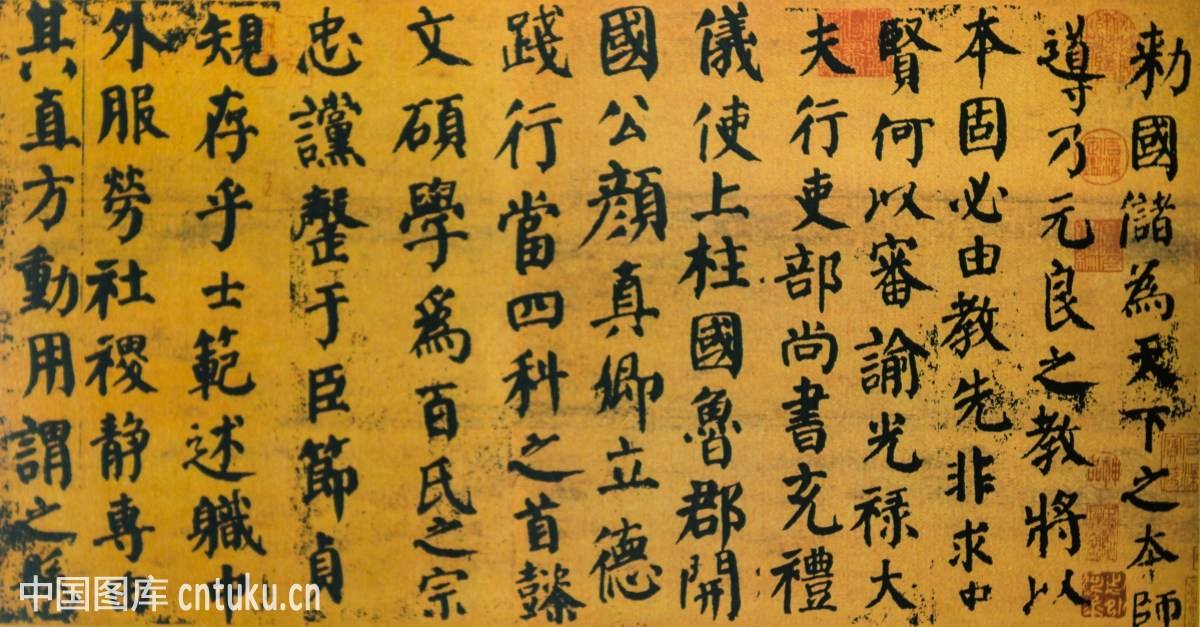 勅國儲為天下之本師
導乃元良之教將以
本固必由教先非求
賢何以審諭光禄大
夫行吏部尚書充禮
儀使上柱國魯郡開
國公顔真卿立德
踐行當四科之首懿
文碩學爲百氏之宗
忠讜罄于臣節貞
規存乎士範述職
外服勞社稷静專
其直方動用謂之
中国图库 cntuku.cn